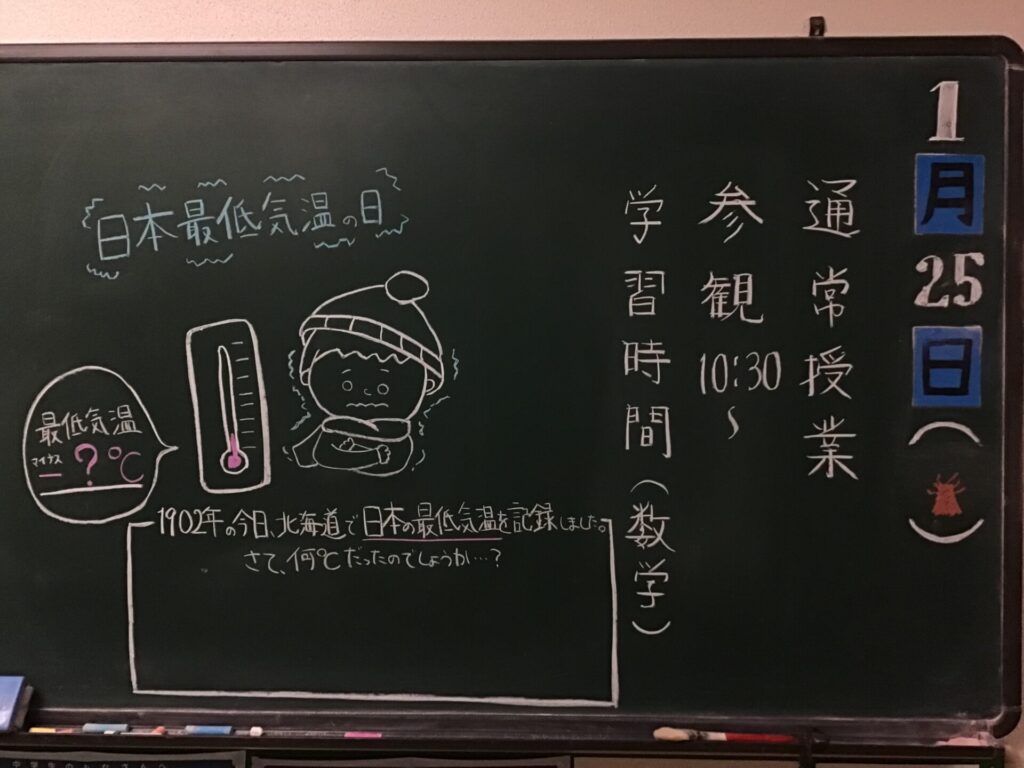 1月25日(火)
通常授業
参観10:30～
学習時間(数学)
日本最低気温の日
最低気温
マイナス
－?℃
1902年の今日、北海道で日本の最低気温を記録しました。
さて、何℃だったのでしょうか…?
中学生のみなさんへ